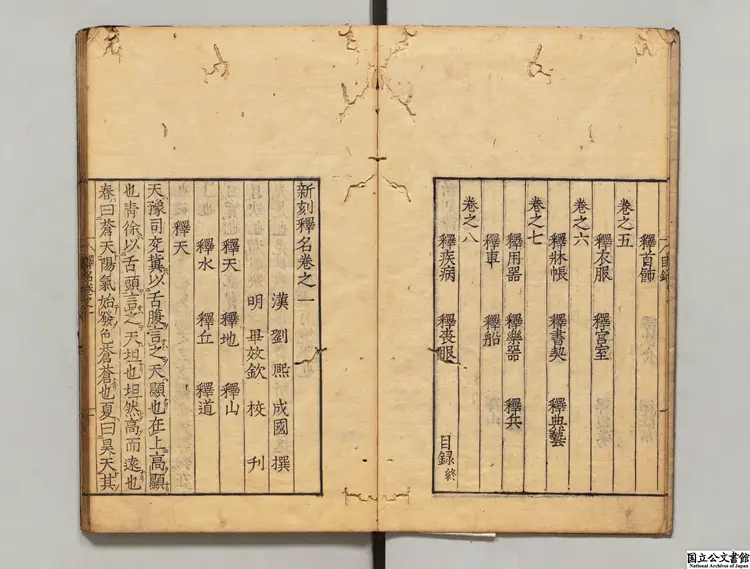 釋首飾
卷之五
釋衣服 釋宮室
卷之六
釋牀帳 釋書契 釋典藝
卷之七
釋用器 釋樂器 釋兵
釋車 釋船
卷之八
釋疾病 釋喪服
目録終
新刻釋名卷之一
漢 劉熙 成國 撰
明 畢效欽 校 刊
釋天 釋地 釋山
釋水 釋丘 釋道
釋天
天豫司兖冀以舌腹言之天顯也在上高顯
也青徐以舌頭言之天坦也坦然高而遠也
春曰蒼天陽氣始發色蒼蒼也夏曰昊天其
国立公文書館
National Archives of Japan